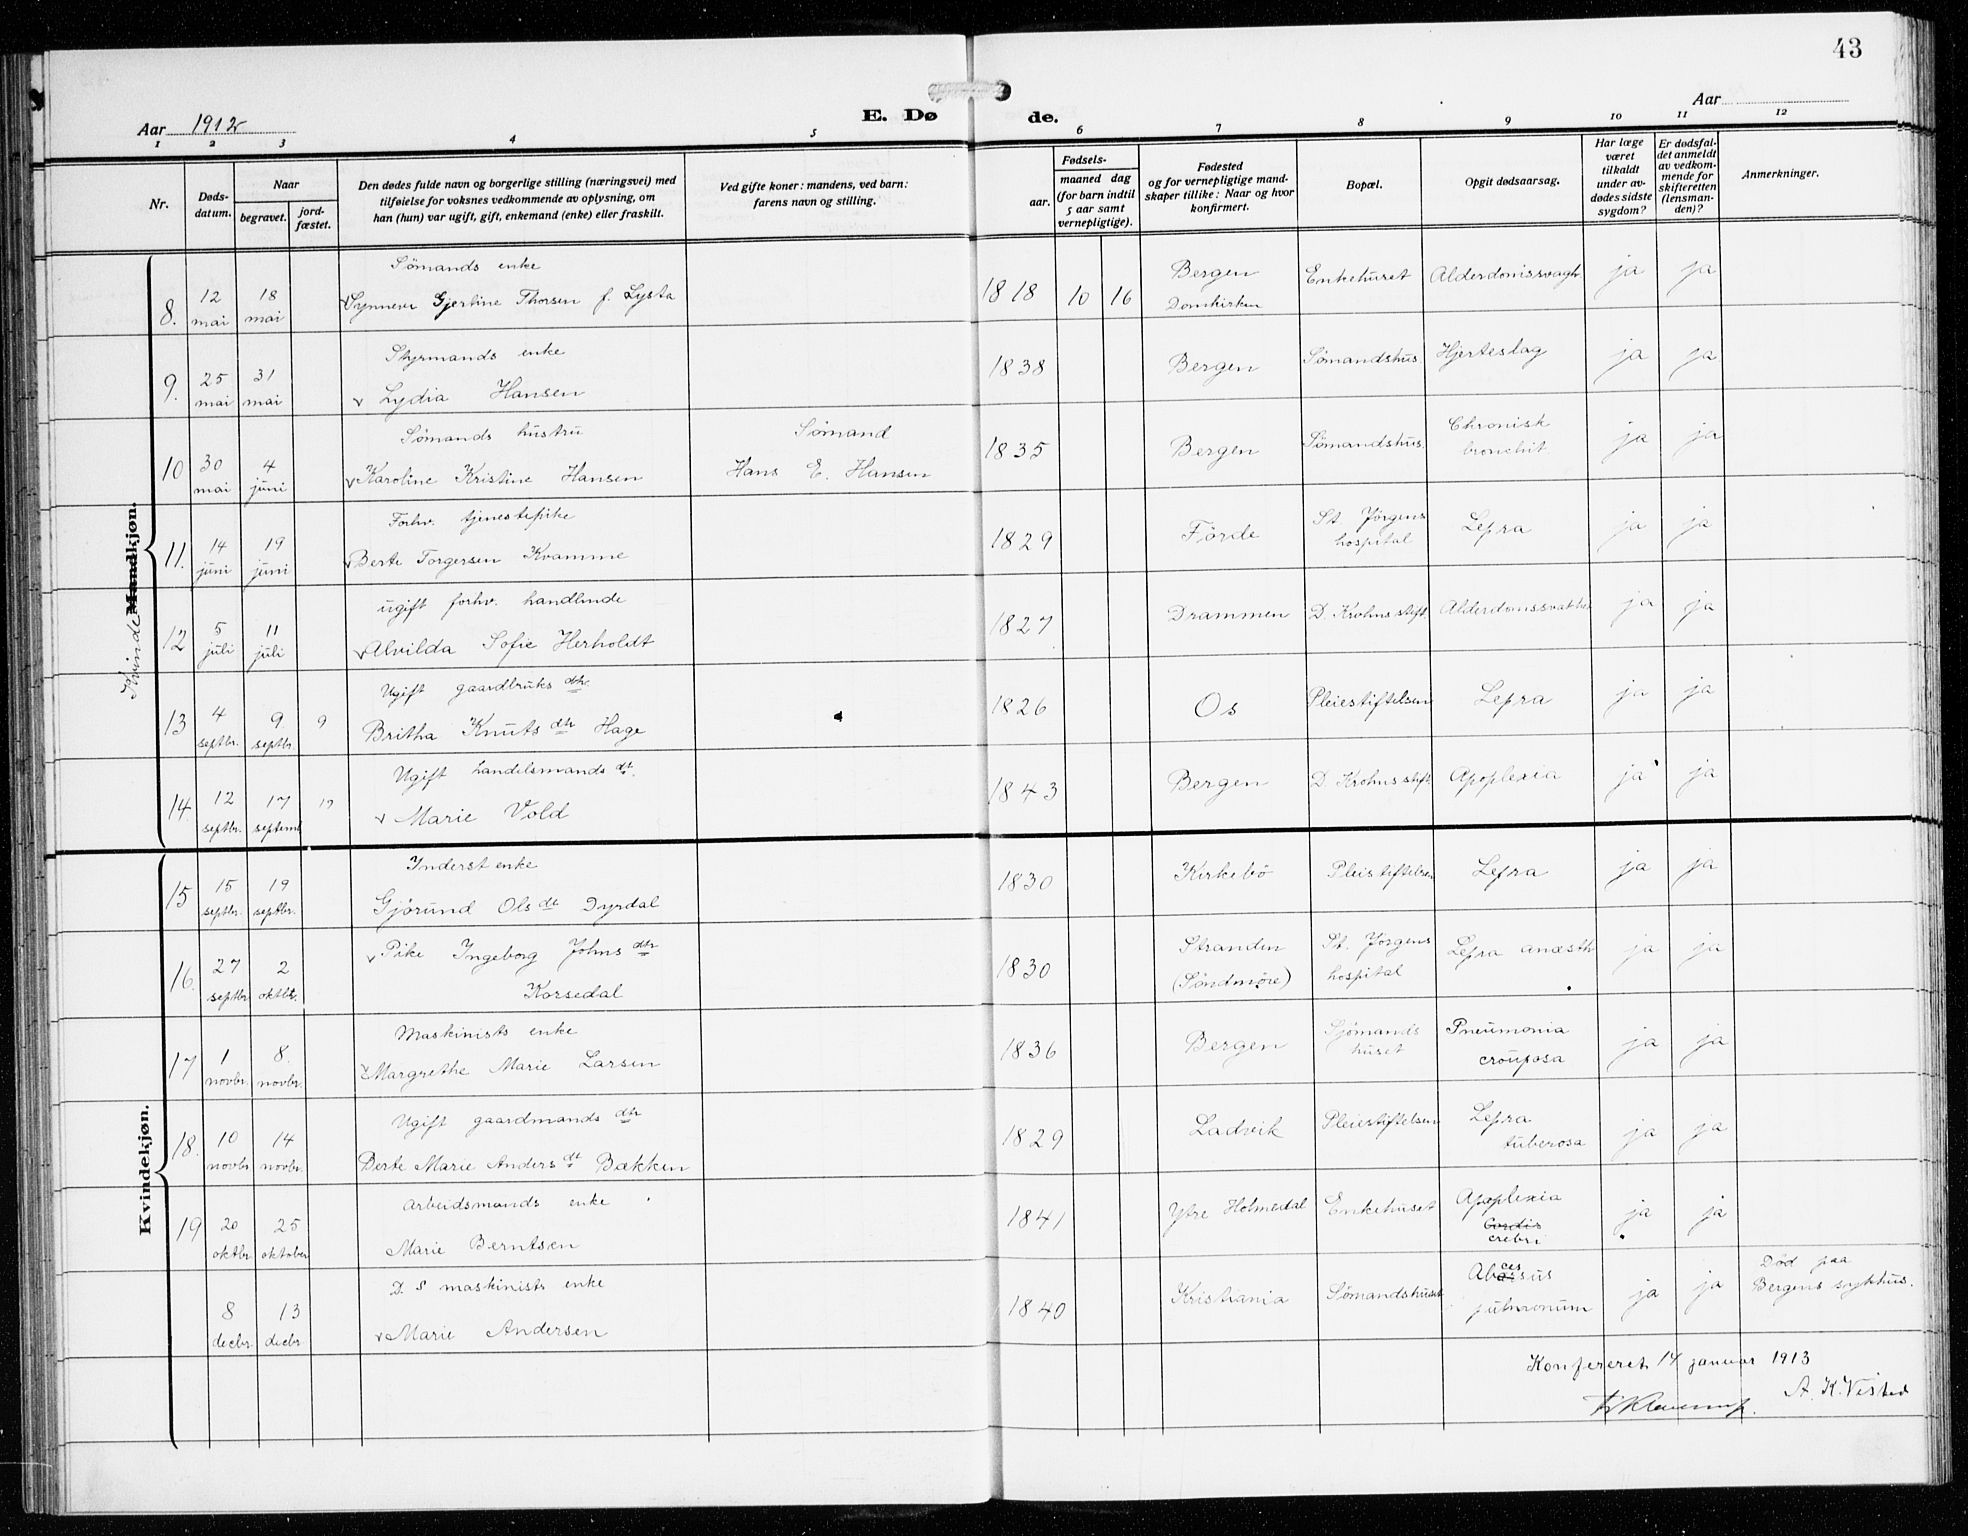 43
Aar 1912
E. Dø
de.
Aar
1 2 3 4 5 6 7 8 9 10 11 12
Nr.
Døds-
datum.
Naar
begravet.
jord-
fæstet.
Den dødes fulde navn og borgerlige stilling (næringsvei) med
tilføielse for voksnes vedkommende av oplysning, om
han (hun) var ugift, gift, enkemand (enke) eller fraskilt.
Ved gifte koner: mandens, ved barn:
farens navn og stilling.
Fødsels-
aar.
maaned dag
(for barn indtil
5 aar samt
vernepligtige).
Fødested
og for vernepligtige mand-
skaper tillike: Naar og hvor
konfirmert.
Bopæl.
Opgit dødsaarsag.
Har læge
været
tilkaldt
under av-
dødes sidste
sygdom?
Er dødsfal-
det anmeldt
av vedkom-
mende for
skifteretten
(lensman-
den)?
Anmerkninger.
Kvinde Mandkjøn.
8. 12 mai 18 mai
Sømands enke
Gjertine Thorsen f. Lysta
1818 10 16 Bergen Domkirken Enkehuset Alderdomssvagh ja ja
9. 25 mai 31 mai
Styrmands enke
Lydia Hansen
1838 Bergen Sømandshus Hjerteslag ja ja
10 30 mai 4 juni
Sømands hustru
Karoline Kristine Hansen
Sømand
Hans E. Hansen
1835 Bergen Sømandshus Chronisk bronchit ja ja
11. 14 juni 19 juni
Forhv. tjenestepike
Berte Torgersen Kvamme
1829 Förde St. Jørgens hospital Lepra ja ja
12 5 juli 11 juli
ugift forhv. handlende
Alvilda Sofie Herholdt
1827 Drammen D. Krohns stift. ja ja
13 4 septbr. 9 septbr. 9
Ugift gaardbruks dtr.
Britha Knuts dtr Hage
1826 Os Pleiestiftelsen Lepra ja ja
14. 12 septbr. 17 septemb 17
Ugift handelsmands dt.
Marie Vold
1843 Bergen D. Krohns stift. Apoplexia ja ja
Kvindekjøn.
15 15 septbr. 19 septbr.
Inderst enke
Gjørund Ols dt Dyrdal
1830 Kirkebö Pleistiftelsen Lepra ja ja
16. 27 septbr 2 oktbr.
Pike Ingeborg Johns dtr
Korsedal
1830 Stranden (Søndmøre) St. Jørgens hospital Lepra anæsth ja ja
17 1 novbr. 8. novbr.
Maskinists enke
Margrethe Marie Larsen
1836 Bergen Sjömands huset Pneumonia crouposa ja ja
18. 10 novbr 14 novbr.
Ugift gaardmands dtr
Berte Marie Anders dt Bækken
1829 Ladvik Pleiestiftelsen Lepra tuberosa ja ja
19 20 oktbr 25 oktober
Arbeidsmands enke
Marie Berntsen
1841 Ytre Holmedal Enkehuset Apoplexia Cordis crebri ja ja
8 decbr. 13 decbr
D. S maskinists enke
Marie Andersen
1840 Kristiania Sømandshuset Abcessus pulmonum ja ja
Død paa
Bergens sykhus.
Konfereret 14 januar 1913
A. K. Visted